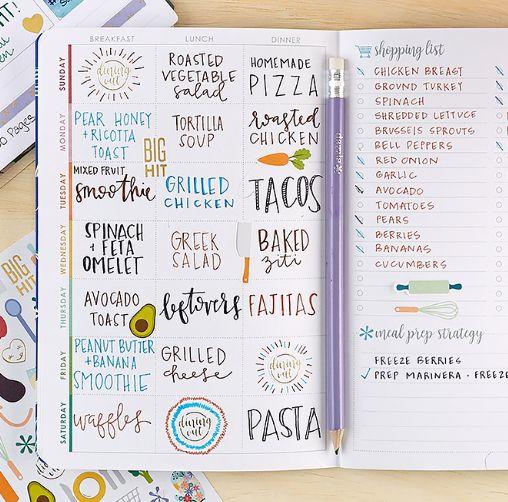 BREAKFAST
LUNCH
DINNER
SUNDAY
dining out
ROASTED
VEGETABLE
salad
HOMEMADE
PIZZA
MONDAY
PEAR HONEY
+ RICOTTA
TOAST
BIG
HIT
TORTILLA
SOUP
roasted
CHICKEN
TUESDAY
MIXED FRUIT
smoothie
GRILLED
CHICKEN
TACOS
WEDNESDAY
SPINACH
+ FETA
OMELET
GREEK
SALAD
BAKED
ziti
THURSDAY
AVOCADO
TOAST
leftovers
FAJITAS
FRIDAY
PEANUT BUTTER
+ BANANA
SMOOTHIE
GRILLED
cheese
dining
out
SATURDAY
waffles
dining
out
PASTA
shopping list
CHICKEN BREAST
GROUND TURKEY
SPINACH
SHREDDED LETTUCE
BRUSSEIS SPROUTS
BELL PEPPERS
RED ONION
GARLIC
AVOCADO
TOMATOES
PEARS
BERRIES
BANANAS
CUCUMBERS
meal prep strategy
FREEZE BERRIES
PREP MARINERA · FREEZE
BIG
HIT
Pages